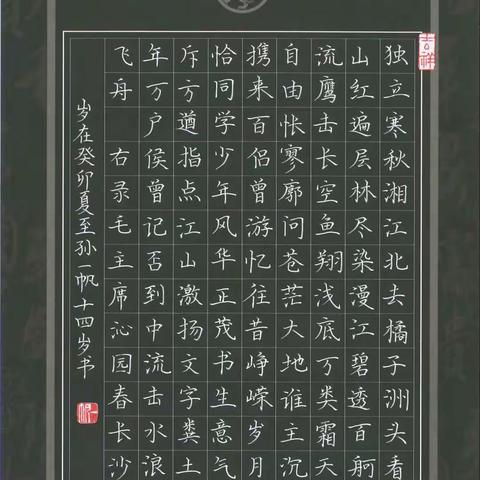 吉祥
独立寒秋湘江北去橘子洲头看
山红遍层林尽染漫江碧透百舸
流鹰击长空鱼翔浅底万类霜天
自由怅寥廓问苍茫大地谁主沉
携来百侣曾游忆往昔峥嵘岁月
恰同学少年风华正茂书生意气
斥方遒指点江山激扬文字粪土
年万户侯曾记否到中流击水浪
飞舟 右录毛主席沁园春长沙
岁在癸卯夏至孙一帆十四岁书